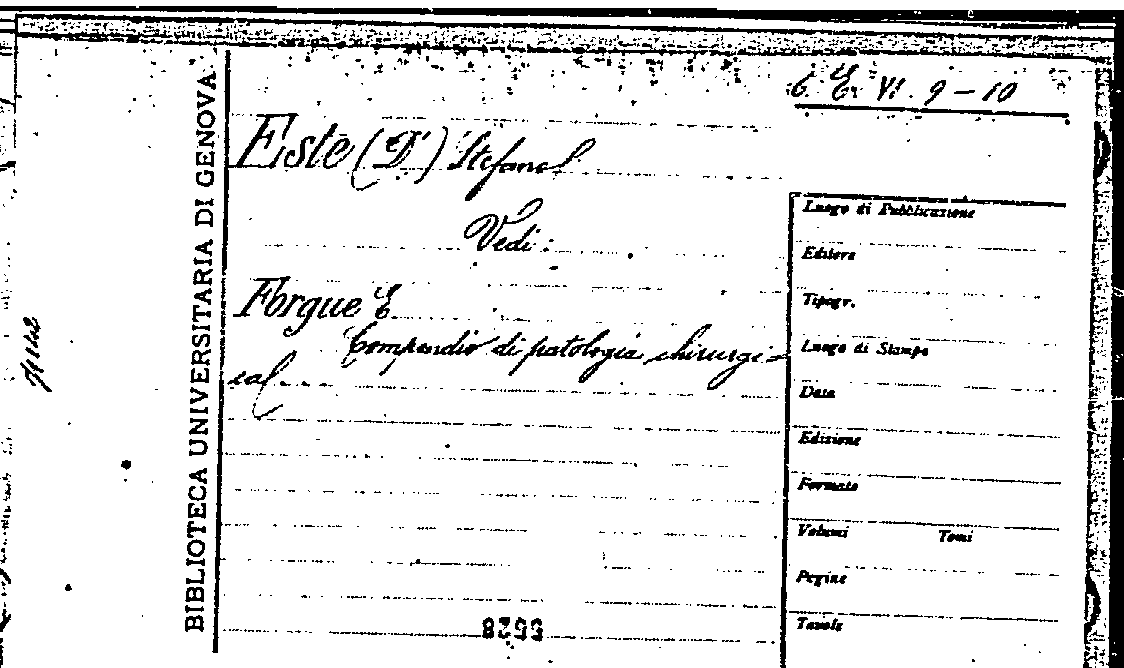 6. E. VI. 9-10
Este (D') Stefano
Vedi:
Forgue E.
Compendio di patologia chirurgi-
cal....
BIBLIOTECA UNIVERSITARIA DI GENOVA
Luogo di Pubblicazione
Editore
Tipogr.
Luogo di Stampa
Data
Edizione
Formato
Volumi Tomi
Pagine
Tavole